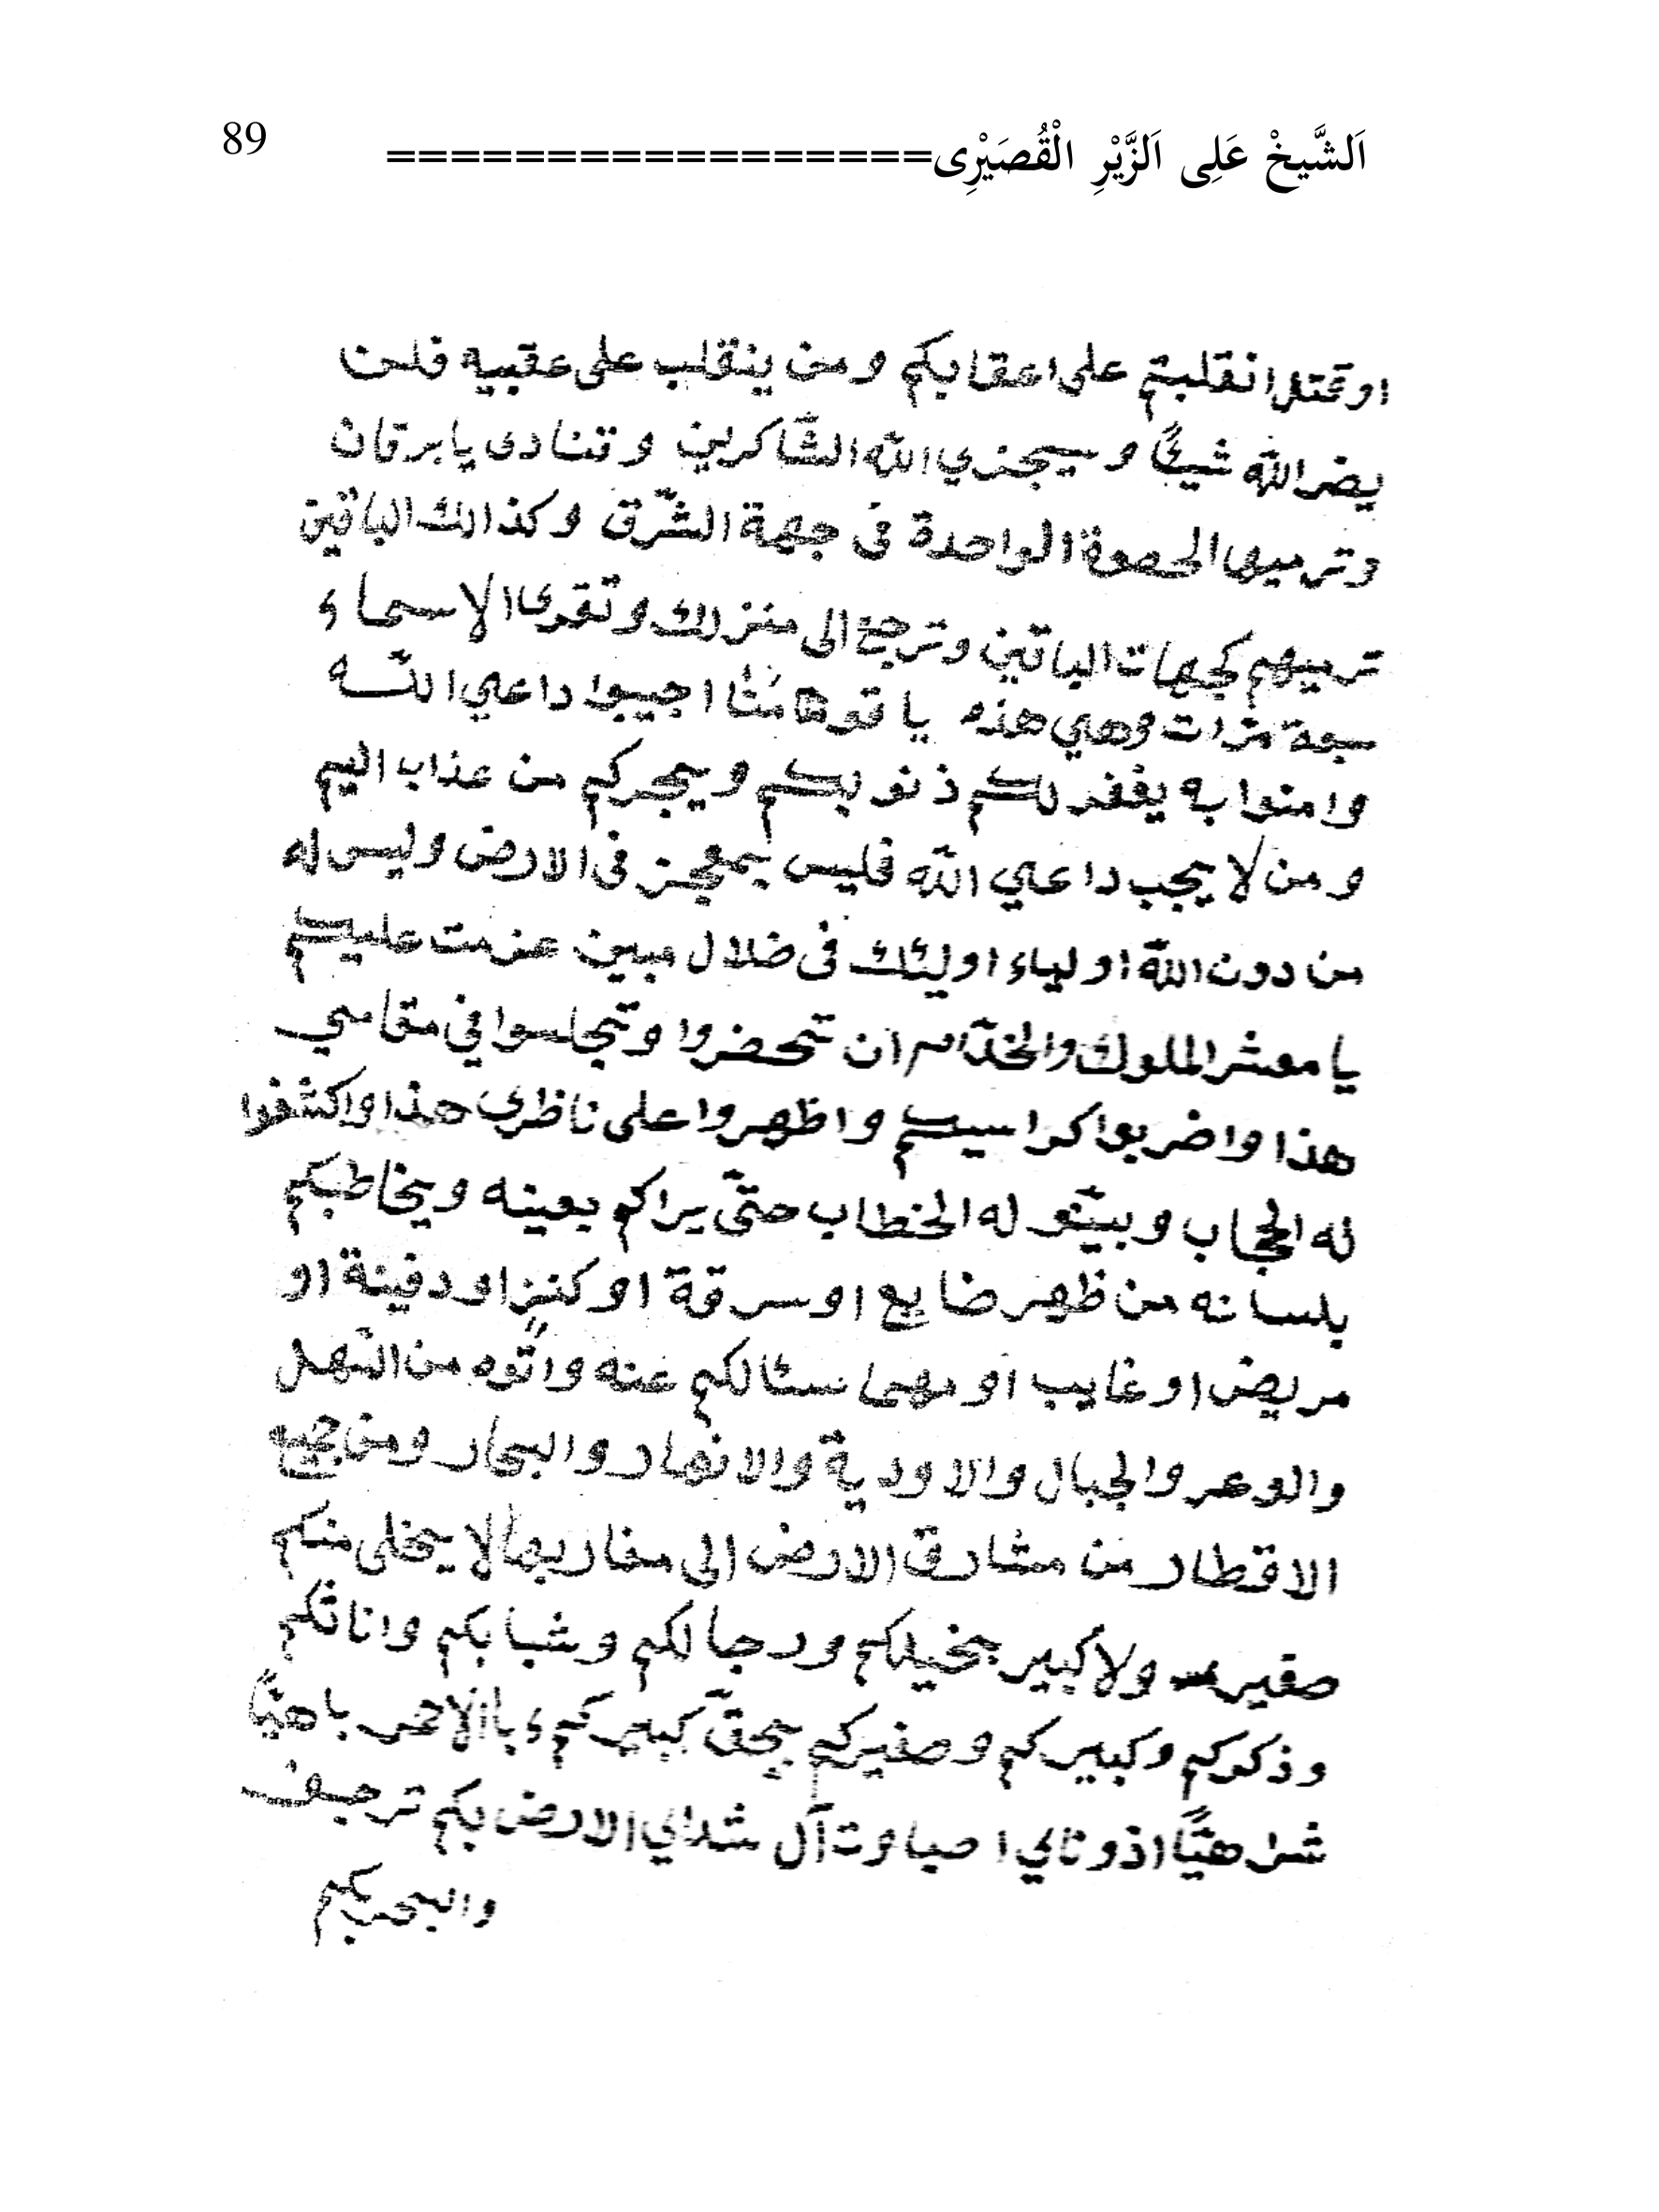 اَلشَّيخْ عَلِى اَلزَّيْرِ الْقُصَيْرِى================= 89
او قتل انقلبتم على اعقابكم ومن ينقلب على عقبيه فلن
يضر الله شيئًا وسيجزي الله الشّاكرين وتنادى يا برقان
وترميها الحصوة الواحدة فى جهة الشّرق وكذالك الباقين
ترميهم لجهات الباقين وترجع الى منزلك وتقرى الاسماء
سبعة مرّات وهي هذه يا قومنا اجيبوا داعي اللّه
وامنوا به يغفر لكم ذنوبكم ويجركم من عذاب اليم
ومن لا يجب داعي اللّه فليس بمعجز فى الارض وليس له
من دون اللّه اولياء اوليئك فى ضلال مبين عزمت عليكم
يا معشر الملوك والخدّام ان تحضروا وتجلسوا في مقامي
هذا واضربوا كراسيكم واظهروا على ناظري هذا واكشفوا
له الحجاب وبيّنو له الخطاب حتّى يراكم بعينه ويخاطبكم
بلسانه من ظهر ضايع او سرقة او كنز او دفينة او
مريض او غايب او مهما سئالكم عنه واتّوه من السّهل
والوعر والجبال والاودية والانهار والبحار ومن جميع
الاقطار من مشارق الارض الى مغاربها لا يخلى منكم
صغير ولا كبير بخيلكم ورجالكم وشبابكم واناثكم
وذكوركم وكبيركم وصغيركم بحقّ كبيركم باالاحمر باهيًّا
شراهيًّا اذوناي اصباوت آل شداي الارض بكم ترجف
والبحر بكم